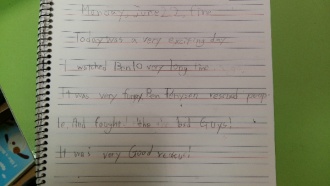 Today was a very exciting day
I watched Ben 10 very long time
It was very funny. Ben Tennyson rescued peop
le And fought the bad Guys!
It was very Good rescue!